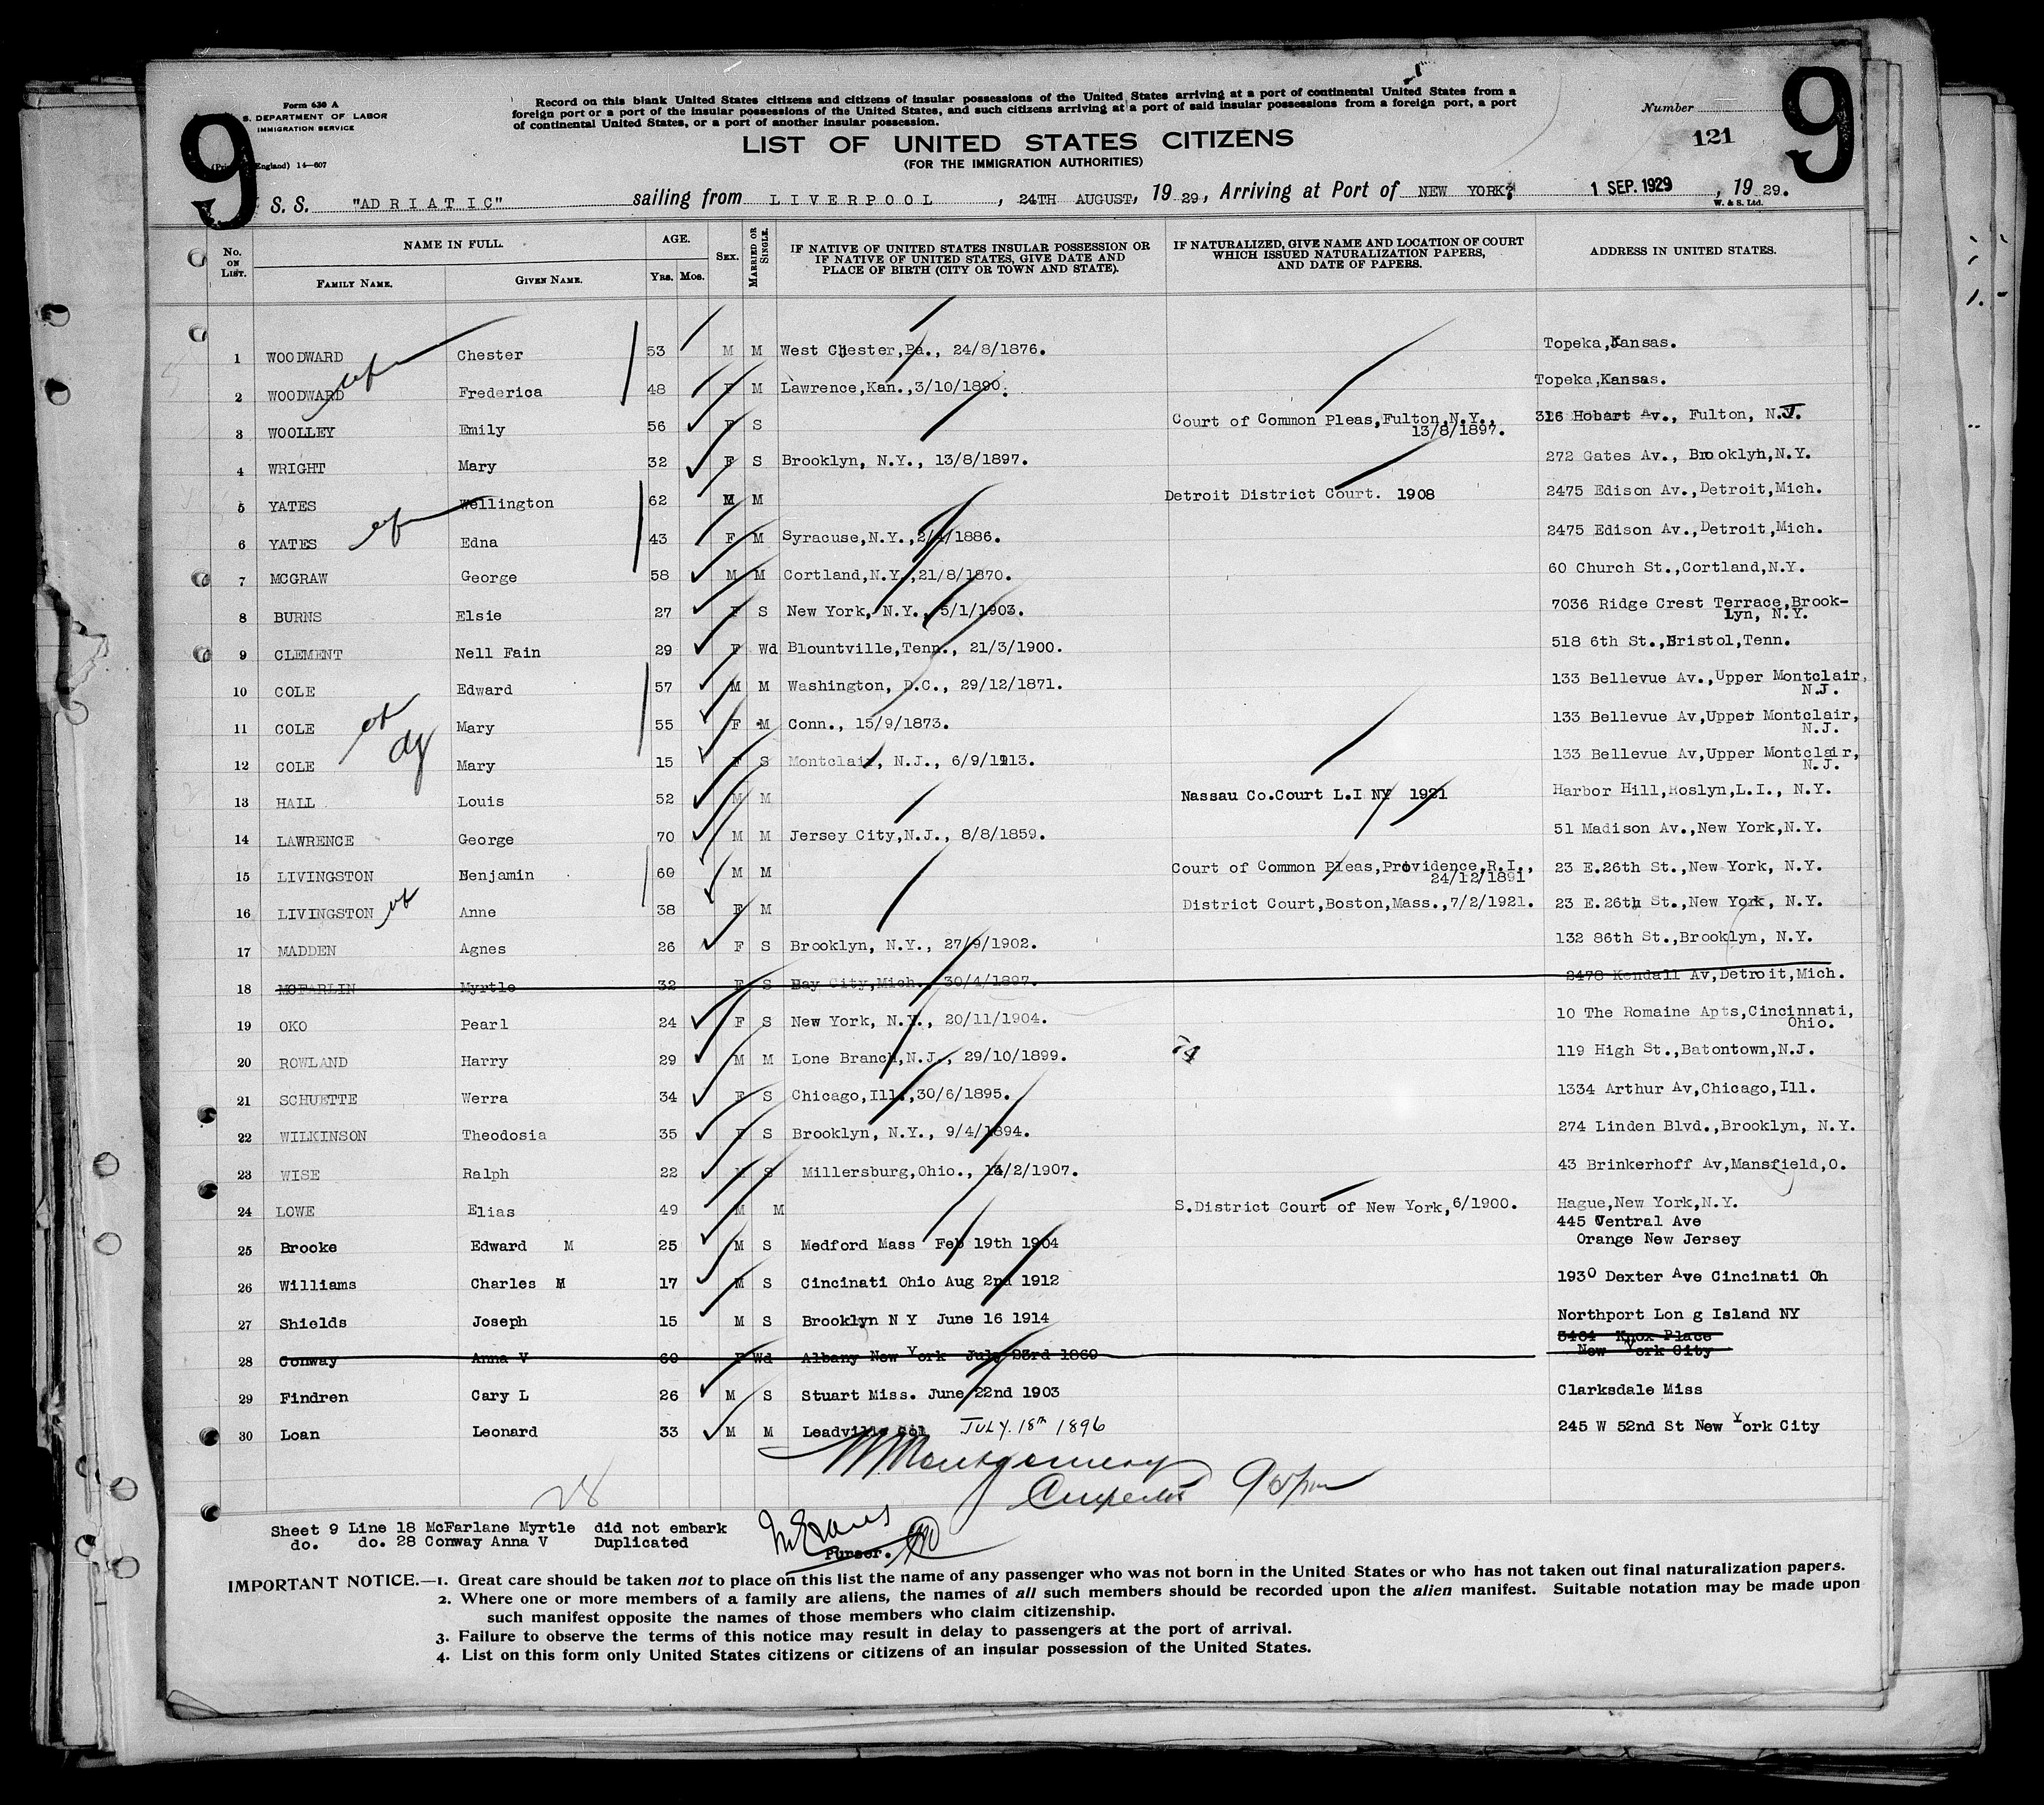 9
Form 630 A
S. DEPARTMENT OF LABOR
IMMIGRATION SERVICE
England) 14—607
Record on this blank United States citizens and citizens of insular possessions of the United States arriving at a port of continental United States from a
foreign port or a port of the insular possessions of the United States, and such citizens arriving at a port of said insular possessions from a foreign port, a port
of continental United States, or a port of another insular possession.
LIST OF UNITED STATES CITIZENS
(FOR THE IMMIGRATION AUTHORITIES)
Number
121
9
S. S. "ADRIATIC" sailing from LIVERPOOL, 24TH AUGUST, 1929, Arriving at Port of NEW YORK, 1 SEP. 1929, 1929.
W. & S. Ltd.
No. ON LIST. NAME IN FULL. FAMILY NAME. GIVEN NAME. AGE. YRS. MOS. SEX. MARRIED OR SINGLE. IF NATIVE OF UNITED STATES INSULAR POSSESSION OR IF NATIVE OF UNITED STATES, GIVE DATE AND PLACE OF BIRTH (CITY OR TOWN AND STATE). IF NATURALIZED, GIVE NAME AND LOCATION OF COURT WHICH ISSUED NATURALIZATION PAPERS, AND DATE OF PAPERS. ADDRESS IN UNITED STATES.
1 WOODWARD Chester 53 M M West Chester,Pa., 24/8/1876. Topeka,Kansas.
2 WOODWARD Frederica 48 F M Lawrence,Kan.,3/10/1890. Topeka,Kansas.
3 WOOLLEY Emily 56 F S Court of Common Pleas,Fulton,N.Y., 13/8/1897. 316 Hobart Av., Fulton, N.J.
4 WRIGHT Mary 32 F S Brooklyn, N.Y., 13/8/1897. 272 Gates Av., Brooklyn,N.Y.
5 YATES Wellington 62 M M Detroit District Court. 1908 2475 Edison Av.,Detroit,Mich.
6 YATES Edna 43 F M Syracuse,N.Y.,2/4/1886. 2475 Edison Av.,Detroit,Mich.
7 MCGRAW George 58 M M Cortland,N.Y.,21/8/1870. 60 Church St.,Cortland,N.Y.
8 BURNS Elsie 27 F S New York, N.Y., 5/1/1903. 7036 Ridge Crest Terrace,Brook-
lyn, N.Y.
9 CLEMENT Nell Fain 29 F Wd Blountville,Tenn., 21/3/1900. 518 6th St.,Bristol,Tenn.
10 COLE Edward 57 M M Washington, D.C., 29/12/1871. 133 Bellevue Av.,Upper Montclair,
N.J.
11 COLE Mary 55 F M Conn., 15/9/1873. 133 Bellevue Av,Upper Montclair,
N.J.
12 COLE Mary 15 F S Montclair, N.J., 6/9/1913. 133 Bellevue Av,Upper Montclair,
N.J.
13 HALL Louis 52 M M Nassau Co.Court L.I NY 1921 Harbor Hill,Roslyn,L.I., N.Y.
14 LAWRENCE George 70 M M Jersey City,N.J., 8/8/1859. 51 Madison Av.,New York,N.Y.
15 LIVINGSTON Benjamin 60 M M Court of Common Pleas,Providence,R.I., 24/12/1891 23 E.26th St.,New York, N.Y.
16 LIVINGSTON Anne 38 F M District Court,Boston,Mass.,7/2/1921. 23 E.26th St.,New York, N.Y.
17 MADDEN Agnes 26 F S Brooklyn, N.Y., 27/9/1902. 132 86th St.,Brooklyn, N.Y.
18 MCFARLIN Myrtle 32 F S Bay City,Mich., 30/4/1897. 2478 Kendall Av,Detroit,Mich.
19 OKO Pearl 24 F S New York, N.Y., 20/11/1904. 10 The Romaine Apts,Cincinnati,
Ohio.
20 ROWLAND Harry 29 M M Lone Branch,N.J., 29/10/1899. 119 High St.,Batontown,N.J.
21 SCHUETTE Werra 34 F S Chicago,Ill.,30/6/1895. 1334 Arthur Av,Chicago,Ill.
22 WILKINSON Theodosia 35 F S Brooklyn, N.Y., 9/4/1894. 274 Linden Blvd.,Brooklyn, N.Y.
23 WISE Ralph 22 M S Millersburg,Ohio., 14/2/1907. 43 Brinkerhoff Av,Mansfield,O.
24 LOWE Elias 49 M M S.District Court of New York,6/1900. Hague,New York,N.Y.
25 Brooke Edward M 25 M S Medford Mass Feb 19th 1904 445 Central Ave
Orange New Jersey
26 Williams Charles M 17 M S Cincinati Ohio Aug 2nd 1912 1930 Dexter Ave Cincinati Oh
27 Shields Joseph 15 M S Brooklyn N Y June 16 1914 Northport Lon g Island NY
28 Conway Anna V 60 F Wd Albany New York July 23rd 1869 3464 Knox Place
New York City
29 Findren Cary L 26 M S Stuart Miss. June 22nd 1903 Clarksdale Miss
30 Loan Leonard 33 M M Leadville Col JULY. 18th 1896 245 W 52nd St New York City
W Montgomery
28
Sheet 9 Line 18 McFarlane Myrtle did not embark
do. do. 28 Conway Anna V Duplicated
Purser.
IMPORTANT NOTICE.—1. Great care should be taken not to place on this list the name of any passenger who was not born in the United States or who has not taken out final naturalization papers.
2. Where one or more members of a family are aliens, the names of all such members should be recorded upon the alien manifest. Suitable notation may be made upon
such manifest opposite the names of those members who claim citizenship.
3. Failure to observe the terms of this notice may result in delay to passengers at the port of arrival.
4. List on this form only United States citizens or citizens of an insular possession of the United States.